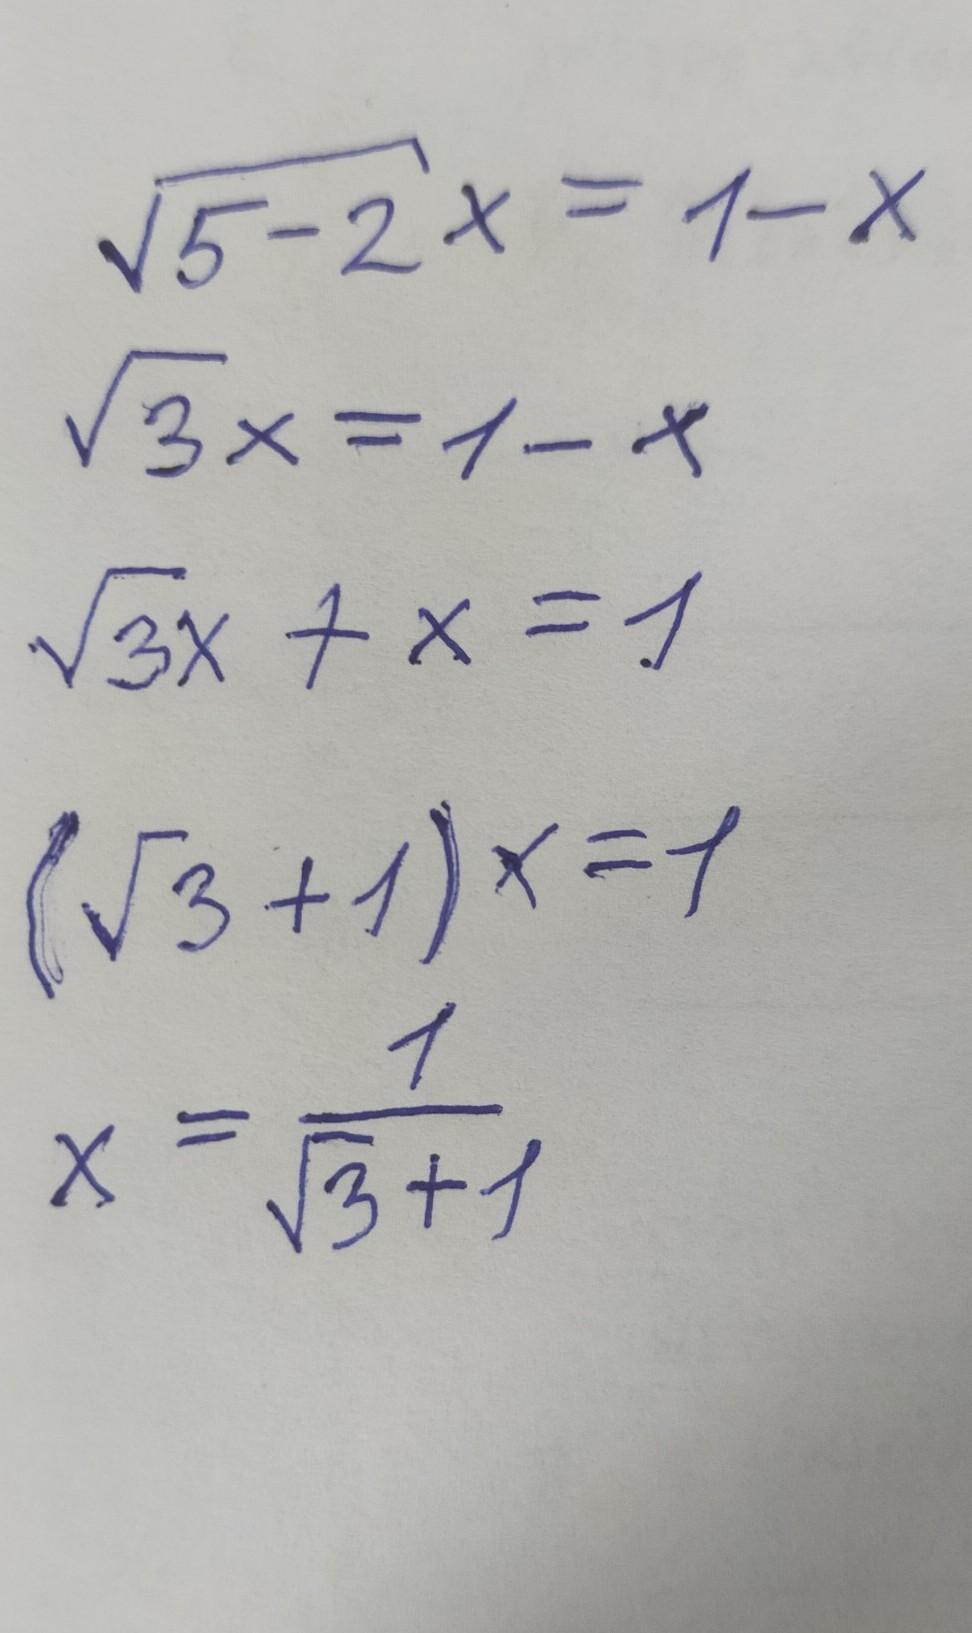 √(5-2)x = 1 - x
√3x = 1 - x
√3x + x = 1
(√3 + 1)x = 1
x = 1/(√3 + 1)